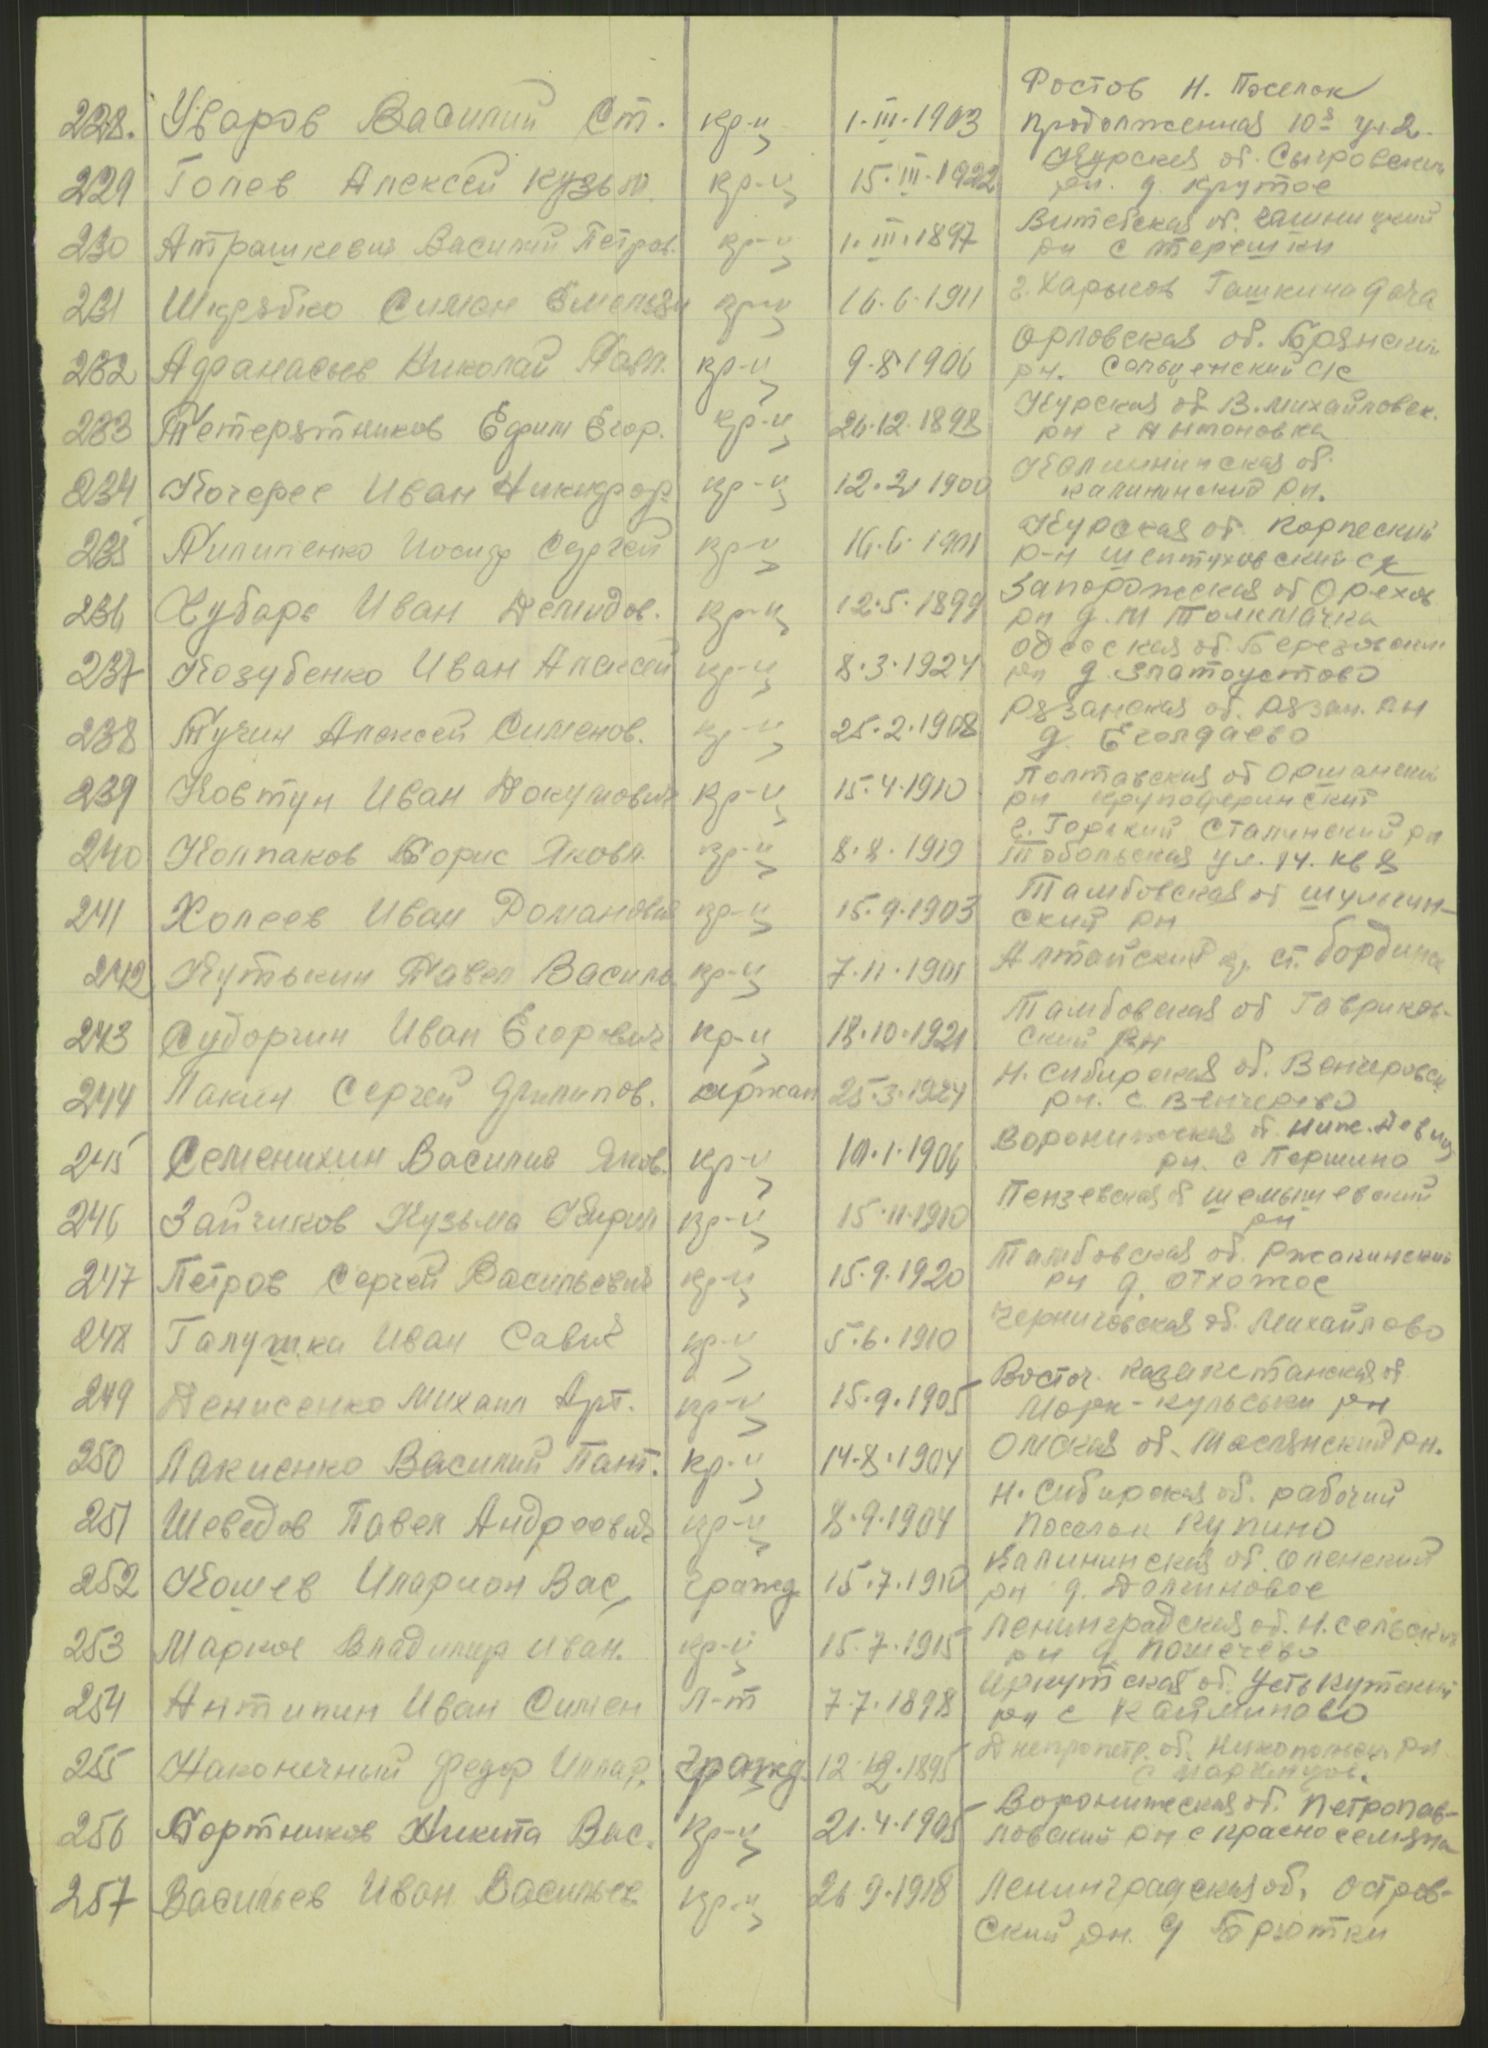 228. Уваров Василий Ст. кр-ц 1.III.1903 Ростов Н. Поселок
продолженная 10 ул 2.
229 Голев Алексей Кузьм. кр-ц 15.III.1922 Курская об. Сыгровский
рн. д. Крутое
230 Атрашкевич Василий Петров. кр-ц 1.III.1897 Витебская об. Чашницкий
рн с Терешки
231 Шкрябко Симон Емельян кр-ц 16.6.1911 г. Харьков Гашкина дача
232 Афанасьев Николай Павл. кр-ц 9.8.1906 Орловская об. Брянский
рн. с/с
233 Тетерятников Ефим Егор. кр-ц 26.12.1898 Курская об В.Михайловск.
рн с Антоновка
234 Кочерес Иван Никифор. кр-ц 12.2.1900 Калининская об.
калининский рн.
235 Пилипенко Иосиф Сергей кр-ц 16.6.1901 Курская об. Корпеский
р-н Шептуховский с/с
236 Хубарь Иван Демидов. кр-ц 12.5.1899 Запорожская об Орехов
рн д. М Толкмачка
237 Козубенко Иван Алексей кр-ц 8.3.1924 Одесская об. Березовский
рн д. Златоустово
238 Тучин Алексей Сименов. кр-ц 25.2.1908 Рязанская об. Рязан. рн
д. Еголдаево
239 Ковтун Иван Докумович кр-ц 15.4.1910 Полтавская об Оршанский
рн круподеринский
240 Колпаков Борис Яковл. кр-ц 8.8.1919 г. Горький Сталинский рн
Тобольская ул. 14. кв 8
241 Холеев Иван Романович кр-ц 15.9.1903 Тамбовская об шульгин-
ский рн
242 Кутькин Павел Василь кр-ц 7.11.1901 Алтайский кр. ст. бордина
243 Суборгин Иван Егорович кр-ц 18.10.1921 Тамбовская об Гавриков-
ский рн
244 Лакин Сергей Филипов. сержан 25.3.1924 Н. Сибирская об. Венгеровск
рн. с Венгерово
245 Семенихин Василий Яков. кр-ц 10.1.1906 Воронижская об. Ниж.Девиц
рн. с Першино
246 Зайчиков Кузьма Кирил кр-ц 15.11.1910 Пензевская об шемышевский
рн
247 Петров Сергей Васильевич кр-ц 15.9.1920 Тамбовская об. Ржакинский
рн д. Отхожое
248 Галушка Иван Савич кр-ц 5.6.1910 Черниговская об. Михайлово
249 Денисенко Михаил Арт. кр-ц 15.9.1905 Восточ. Казакстанская об.
Марк-кульськи рн
250 Лакиенко Василий Пант. кр-ц 14.8.1904 Омская об. Маслянский рн.
251 Шеведов Павел Андреевич кр-ц 8.9.1904 Н. Сибирская об. рабочий
поселок Купино
252 Кошев Иларион Вас, гражд 15.7.1910 Калининская об. Оленский
рн д. Долгиновое
253 Маркое Владимир Иван. кр-ц 15.7.1915 Ленинградская об. Н. сельский
рн д. Пошечево
254 Антипин Иван Симен л-т 7.7.1898 Иркутская об. Усть Кутский
рн с Каймипово
255 Наконечный Федор Иллар. гражд. 12.12.1895 Днепропетр. об. Никопольск рн
256 Бортников Никита Вас. кр-ц 21.4.1905 Воронижская об. Петропав-
ловский рн с красноселянка
257 Васильев Иван Васильев кр-ц 26 9.1918 Ленинградская об, Остров-
ский рн. д Брютки